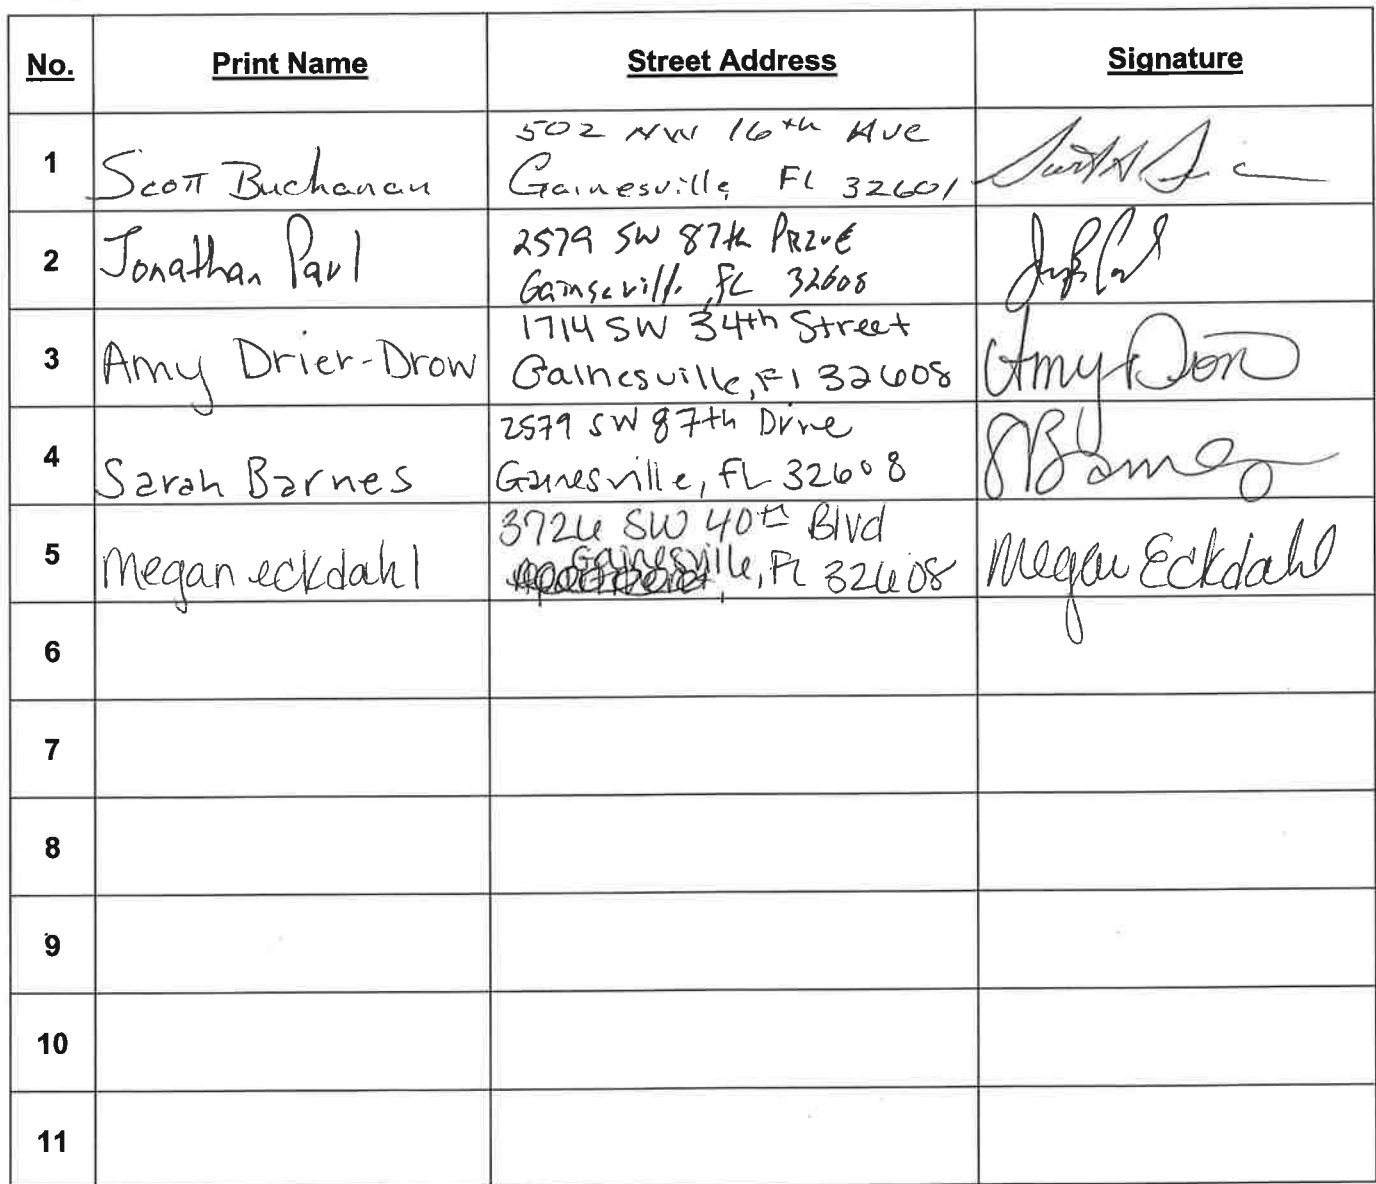 No. Print Name Street Address Signature
1 Scott Buchanan
502 NW 16th Ave
Gainesville, FL 32601
2 Jonathan Paul
2579 SW 87th Drive
Gainseville, FL 32608
3 Amy Drier-Drow
1714 SW 34th Street
Gainesville, Fl 32608
Amy
4 Sarah Barnes
2579 SW 87th Drive
Gainesville, FL 32608
5 Megan eckdahl
3726 SW 40th Blvd
Gainesville, FL 32608
Megan Eckdahl
6
7
8
9
10
11